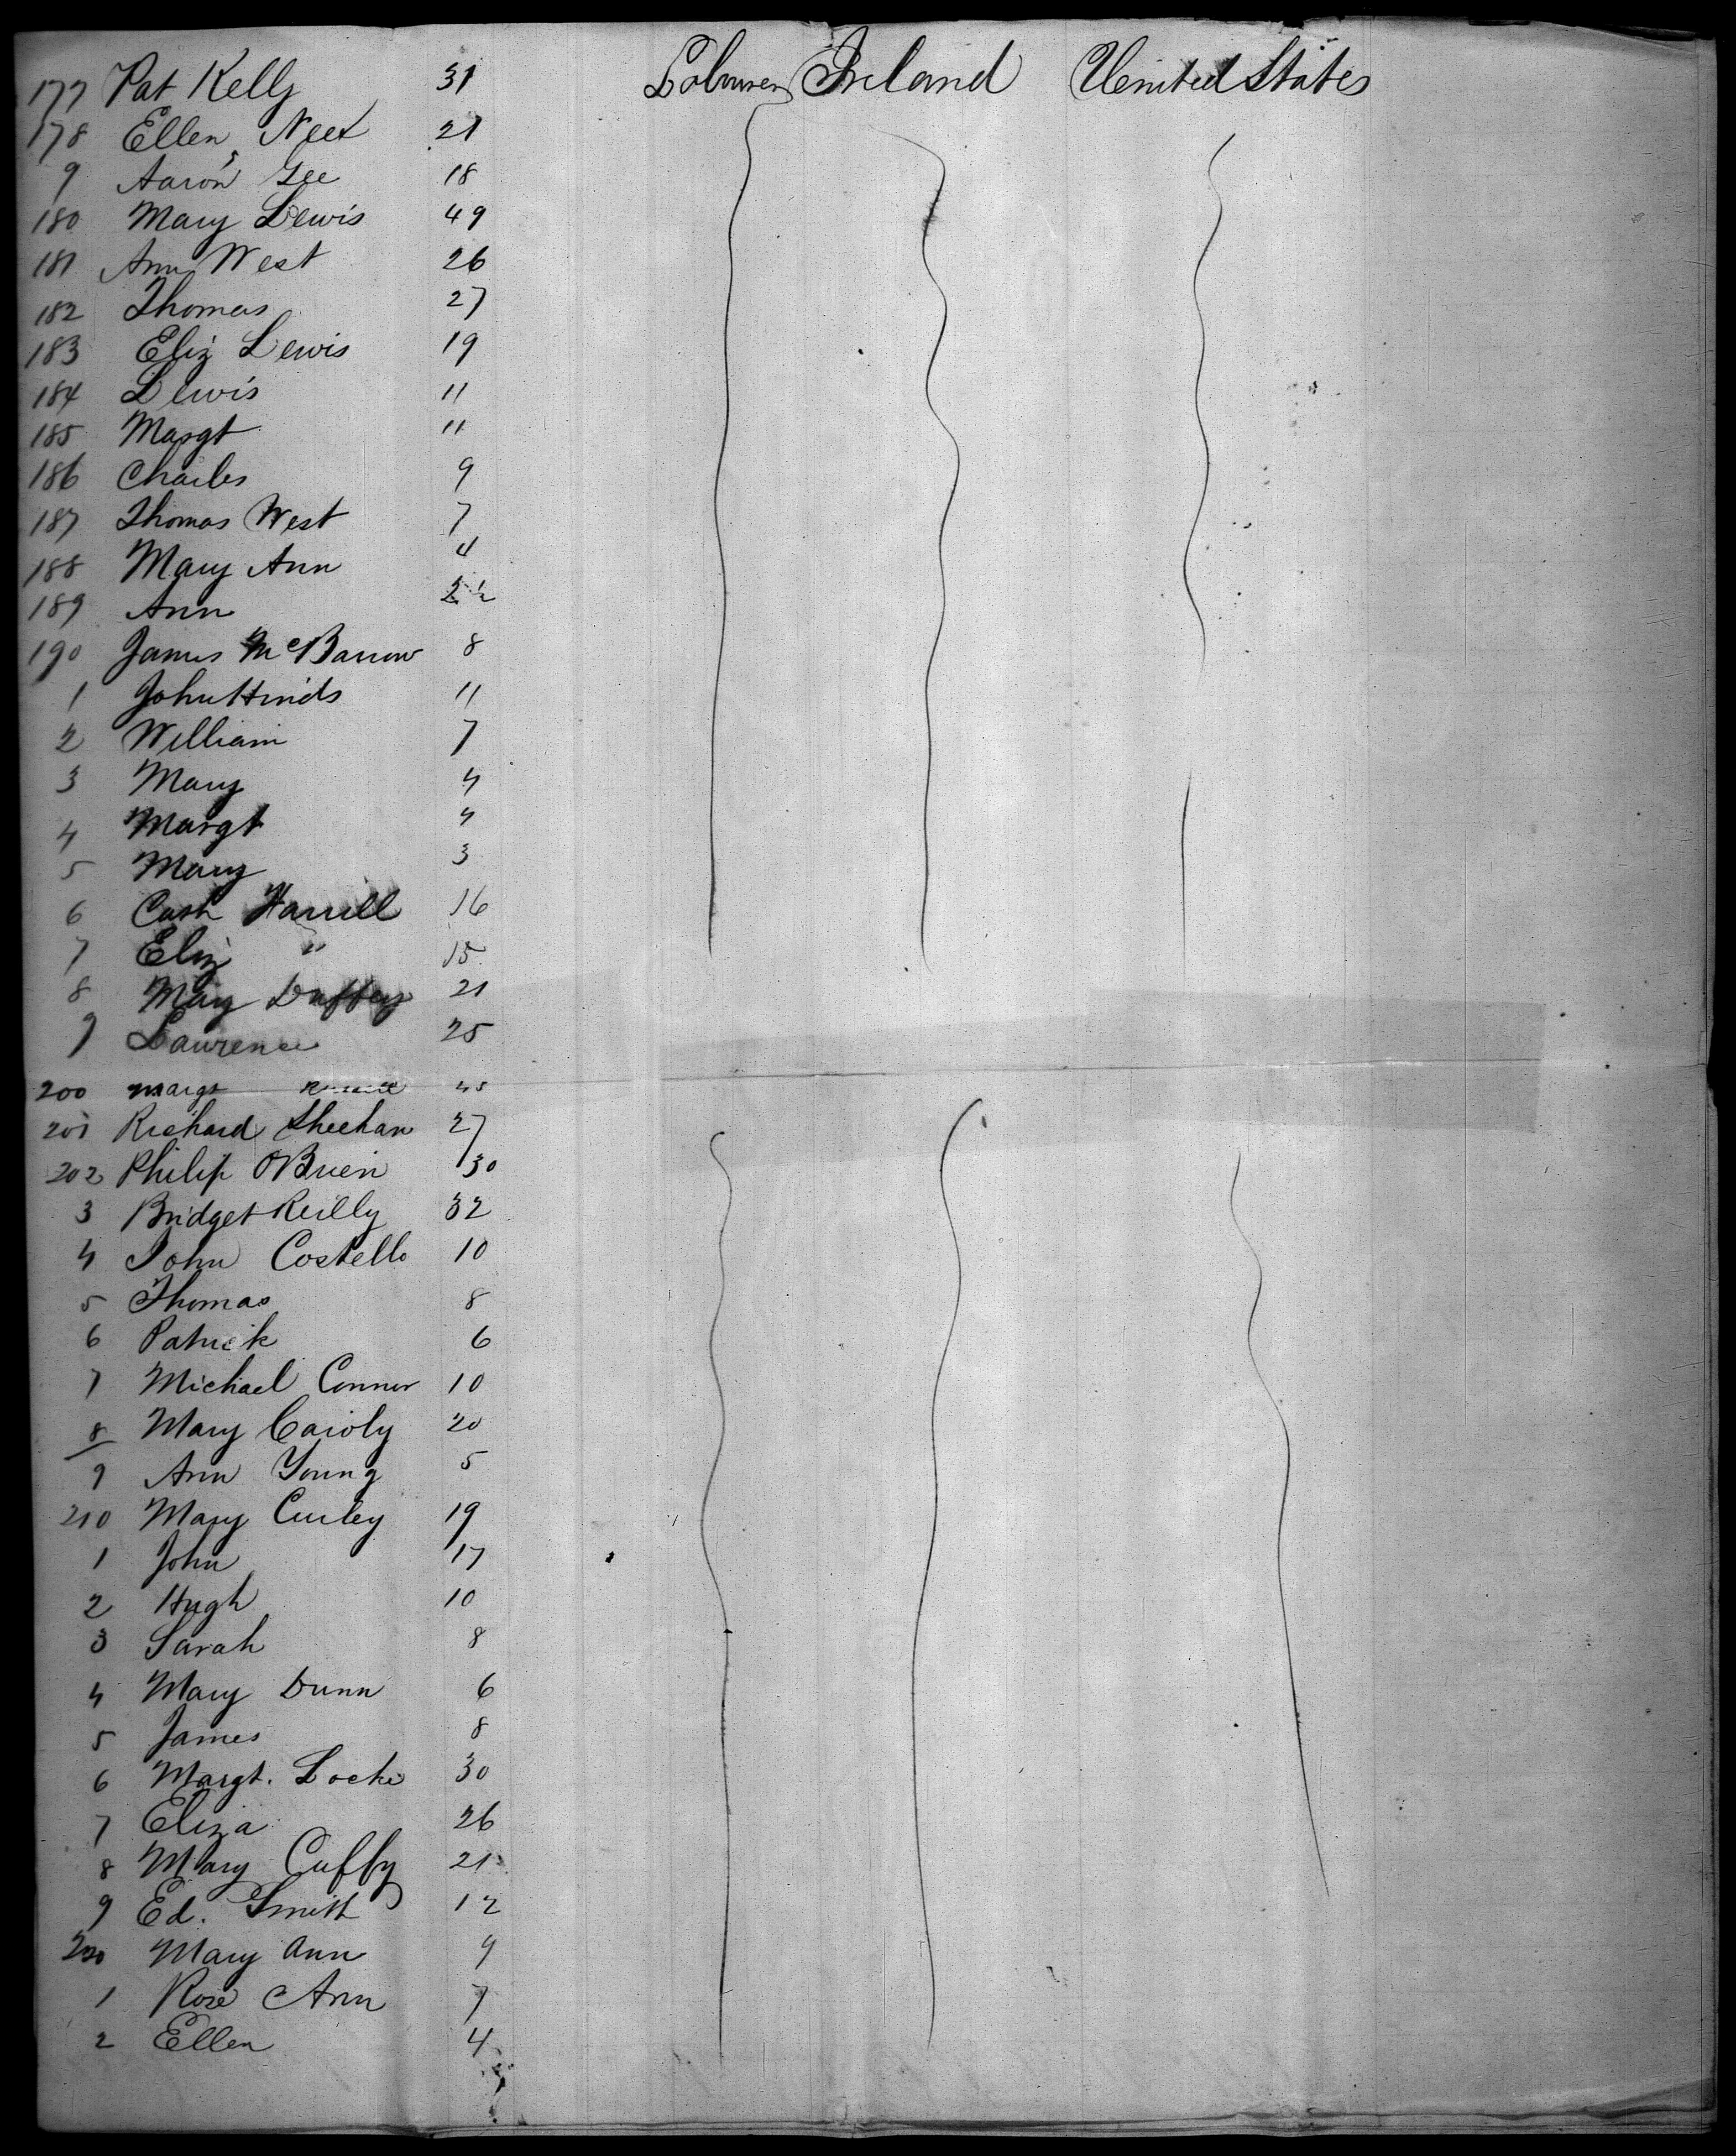 177 Pat Kelly 31 Labourer Ireland United States
178 Ellen 21
9 Aaron Gee 18
180 Mary Lewis 49
181 Ann West 26
182 Thomas 27
183 Eliz Lewis 19
184 Lewis 11
185 Margt 11
186 Charles 9
187 Thomas West 7
188 Mary Ann 4
189 Ann 2½
190 James McBarron 8
1 John Hinds 11
2 William 7
3 Mary 4
4 Margt 4
5 Mary 3
6 Cath Harrill 16
7 Eliz " 15
8 Mary Duffey 21
9 Lawrence 25
200 Margt 45
201 Richard Sheehan 27
202 Philip OBrien 30
3 Bridget Reilly 32
4 John Costello 10
5 Thomas 8
6 Patrick 6
7 Michael Connor 10
8 Mary Caroly 20
9 Ann Young 5
210 Mary Curley 19
1 John 17
2 Hugh 10
3 Sarah 8
4 Mary Dunn 6
5 James 8
6 Margt. Locke 30
7 Eliza 26
8 Mary Cuffy 21
9 Ed. Smith 12
220 Mary Ann 9
1 Rose Ann 7
2 Ellen 4